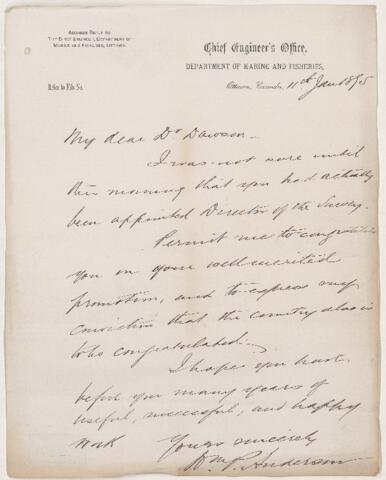 Address Reply to
The Chief Engineer, Department of
Marine and Fisheries, Ottawa.
Refer to File No.
Chief Engineer's Office,
DEPARTMENT OF MARINE AND FISHERIES,
Ottawa, Canada, 11th Jan 1895
My dear Dr Dawson –
I was not sure until
this morning that you had actually
been appointed Director of the Survey.
Permit me to congratulate
you on your well-merited
promotion, and to express my
conviction that the country also is
to be congratulated.
I hope you have
before you many years of
useful, successful, and happy
work
Yours sincerely
Wm P. Anderson